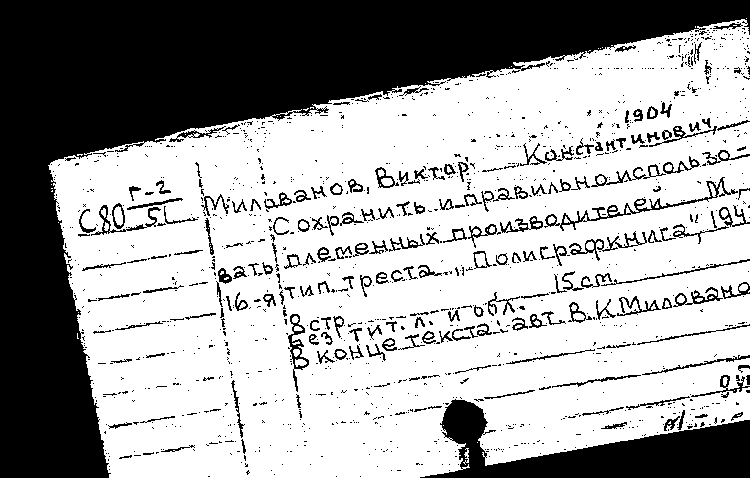 1904
Милованов, Виктор Константинович,
Г-2
С80 51
Сохранить и правильно использо-
вать племенных производителей. М.,
16-я тип. треста „Полиграфкнига", 194
8 стр. 15 cm.
Без тит. л. и обл.
В конце текста: авт. В.К Миловано